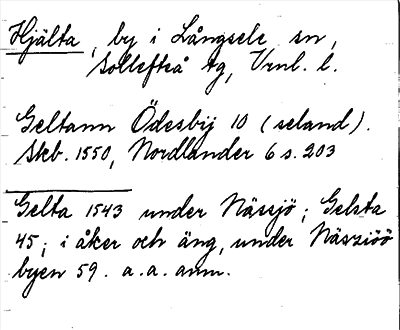 Hjälta, by i Långsele sn,
Sollefteå tg, Vrnl. l.
Geltann Ödesbÿ 10 (seland).
Skb. 1550, Nordlander 6 s. 203
Gelta 1543 under Nässjö; Gelsta
45; i åker och äng, under Näsziöö
byen 59. a.a. anm.